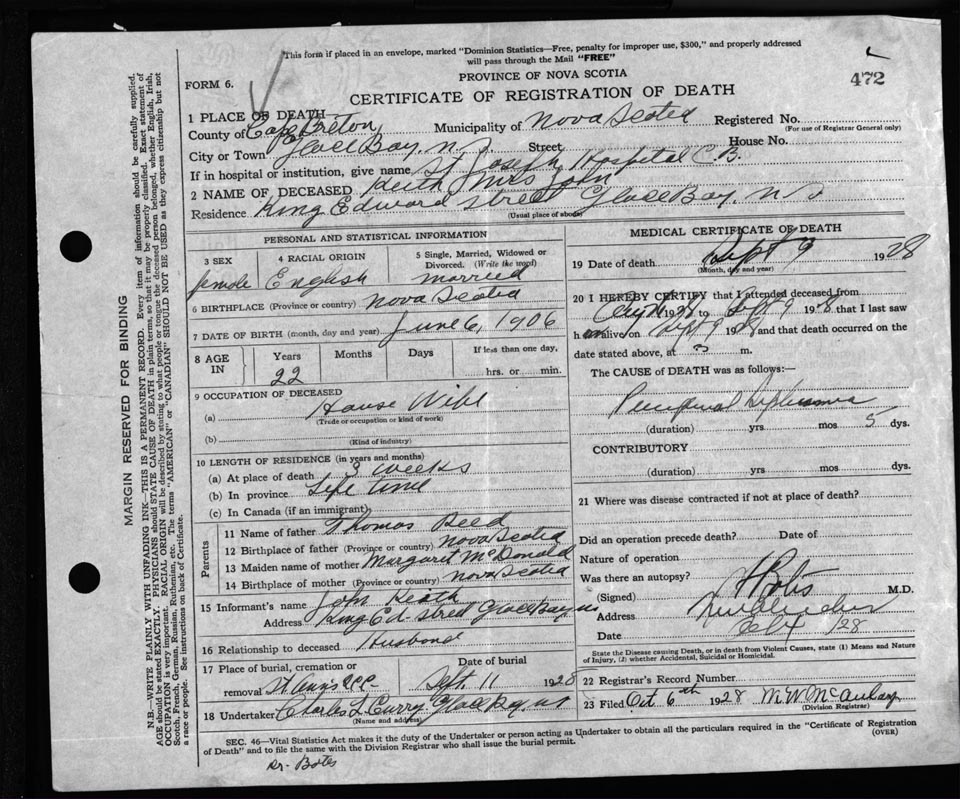 This form if placed in an envelope, marked "Dominion Statistics—Free, penalty for improper use, $300," and properly addressed
will pass through the Mail "FREE"
PROVINCE OF NOVA SCOTIA
472
FORM 6.
CERTIFICATE OF REGISTRATION OF DEATH
1 PLACE OF DEATH
County of Cape Breton Municipality of Nova Scotia Registered No.
(For use of Registrar General only)
City or Town Glace Bay. N.S. Street House No.
If in hospital or institution, give name St Joseph Hospital C.B.
2 NAME OF DECEASED Keith Mrs John
Residence King Edward Street Glace Bay. N S
(Usual place of abode)
PERSONAL AND STATISTICAL INFORMATION
3 SEX 4 RACIAL ORIGIN 5 Single, Married, Widowed or
Divorced. (Write the word)
female English married
6 BIRTHPLACE (Province or country) Nova Scotia
7 DATE OF BIRTH (month, day and year) June 6, 1906
8 AGE IN Years Months Days If less than one day,
22 hrs. or min.
9 OCCUPATION OF DECEASED
(a) House Wife
(Trade or occupation or kind of work)
(b)
(Kind of industry)
10 LENGTH OF RESIDENCE (in years and months)
(a) At place of death 3 weeks
(b) In province Life time
(c) In Canada (if an immigrant)
Parents
11 Name of father Thomas Reed
12 Birthplace of father (Province or country) Nova Scotia
13 Maiden name of mother Margaret McDonald
14 Birthplace of mother (Province or country) Nova Scotia
15 Informant's name John Keath
Address King Ed- Street Glace Bay NS
16 Relationship to deceased Husband
17 Place of burial, cremation or Date of burial
removal St Anns Sept. 11 1928
18 Undertaker Charles L Curry Glace Bay NS
(Name and address)
MEDICAL CERTIFICATE OF DEATH
19 Date of death Sept 9 1928
(Month, day and year)
20 I HEREBY CERTIFY that I attended deceased from
1928 to Sept 9 1928 that I last saw
h alive on Sept 9 1928 and that death occurred on
date stated above, at m.
The CAUSE of DEATH was as follows:—
Puerperal
(duration) yrs mos 5 dys.
CONTRIBUTORY
(duration) yrs mos dys.
21 Where was disease contracted if not at place of death?
Did an operation precede death? Date of
Nature of operation
Was there an autopsy?
(Signed) M.D.
Address
Date 28
State the Disease causing Death, or in death from Violent Causes, state (1) Means and Nature
of Injury, (2) whether Accidental, Suicidal or Homicidal.
22 Registrar's Record Number
23 Filed Oct 6th 1928 M.W. McAulay
(Division Registrar)
SEC. 46—Vital Statistics Act makes it the duty of the Undertaker or person acting as Undertaker to obtain all the particulars required in the "Certificate of Registration
of Death" and to file the same with the Division Registrar who shall issue the burial permit.
(OVER)
Dr. Bates
MARGIN RESERVED FOR BINDING
N.B.—WRITE PLAINLY WITH UNFADING INK—THIS IS A PERMANENT RECORD. Every item of information should be carefully supplied.
AGE should be stated EXACTLY. PHYSICIANS should STATE CAUSE OF DEATH in plain terms, so that it may be properly classified. Exact statement of
OCCUPATION is very important. RACIAL ORIGIN will be described by stating to what people or tongue the deceased person belonged, whether English, Irish,
Scotch, French, German, Russian, Ruthenian, etc. The terms "AMERICAN" or "CANADIAN" SHOULD NOT BE USED as they express citizenship but not
a race or people. See instructions on back of Certificate.